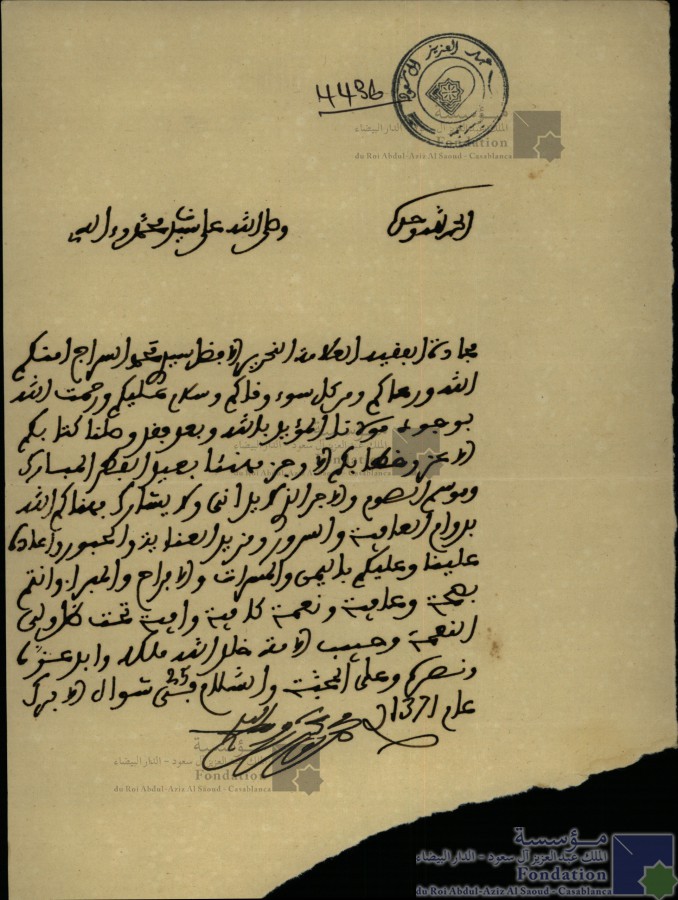 عبد العزيز آل سعود
4436
مؤسسة
الملك عبد العزيز آل سعود - الدار البيضاء
Fondation
du Roi Abdul-Aziz Al Saoud - Casablanca
الحمد لله وحده وصلى الله على سيدنا محمد وءاله
سعادة الفقيه العلامة النحرير الأفضل سيدي محمد السراج امنكم
الله ورعاكم ومن كل سوء وقاكم وسلام عليكم ورحمت الله
بوجود مولانا المؤيد بالله وبعد فقد وصلنا كتابكم
الأعز وخطابكم الأوجز مهنئا بعيد الفطر المبارك
وموسم الصوم والأجر الذي لا يشارك بهناكم الله
بدوام العافية والسرور ومزيد العناية والحبور واعاده
علينا وعليكم باليمن والمسرات والأفراح والمبرات وانتم
بصحة وعافية ونعمة كافية وافية تحت ظل ولي
النعمة وحبيب الأمة خلد الله ملكه وابد عزه
ونصره وعلى المحبة والسلام في 25 شوال الأبرك
عام 1371
مؤسسة
الملك عبد العزيز آل سعود - الدار البيضاء
Fondation
du Roi Abdul-Aziz Al Saoud - Casablanca
مؤسسة
الملك عبد العزيز آل سعود - الدار البيضاء
Fondation
du Roi Abdul-Aziz Al Saoud - Casablanca